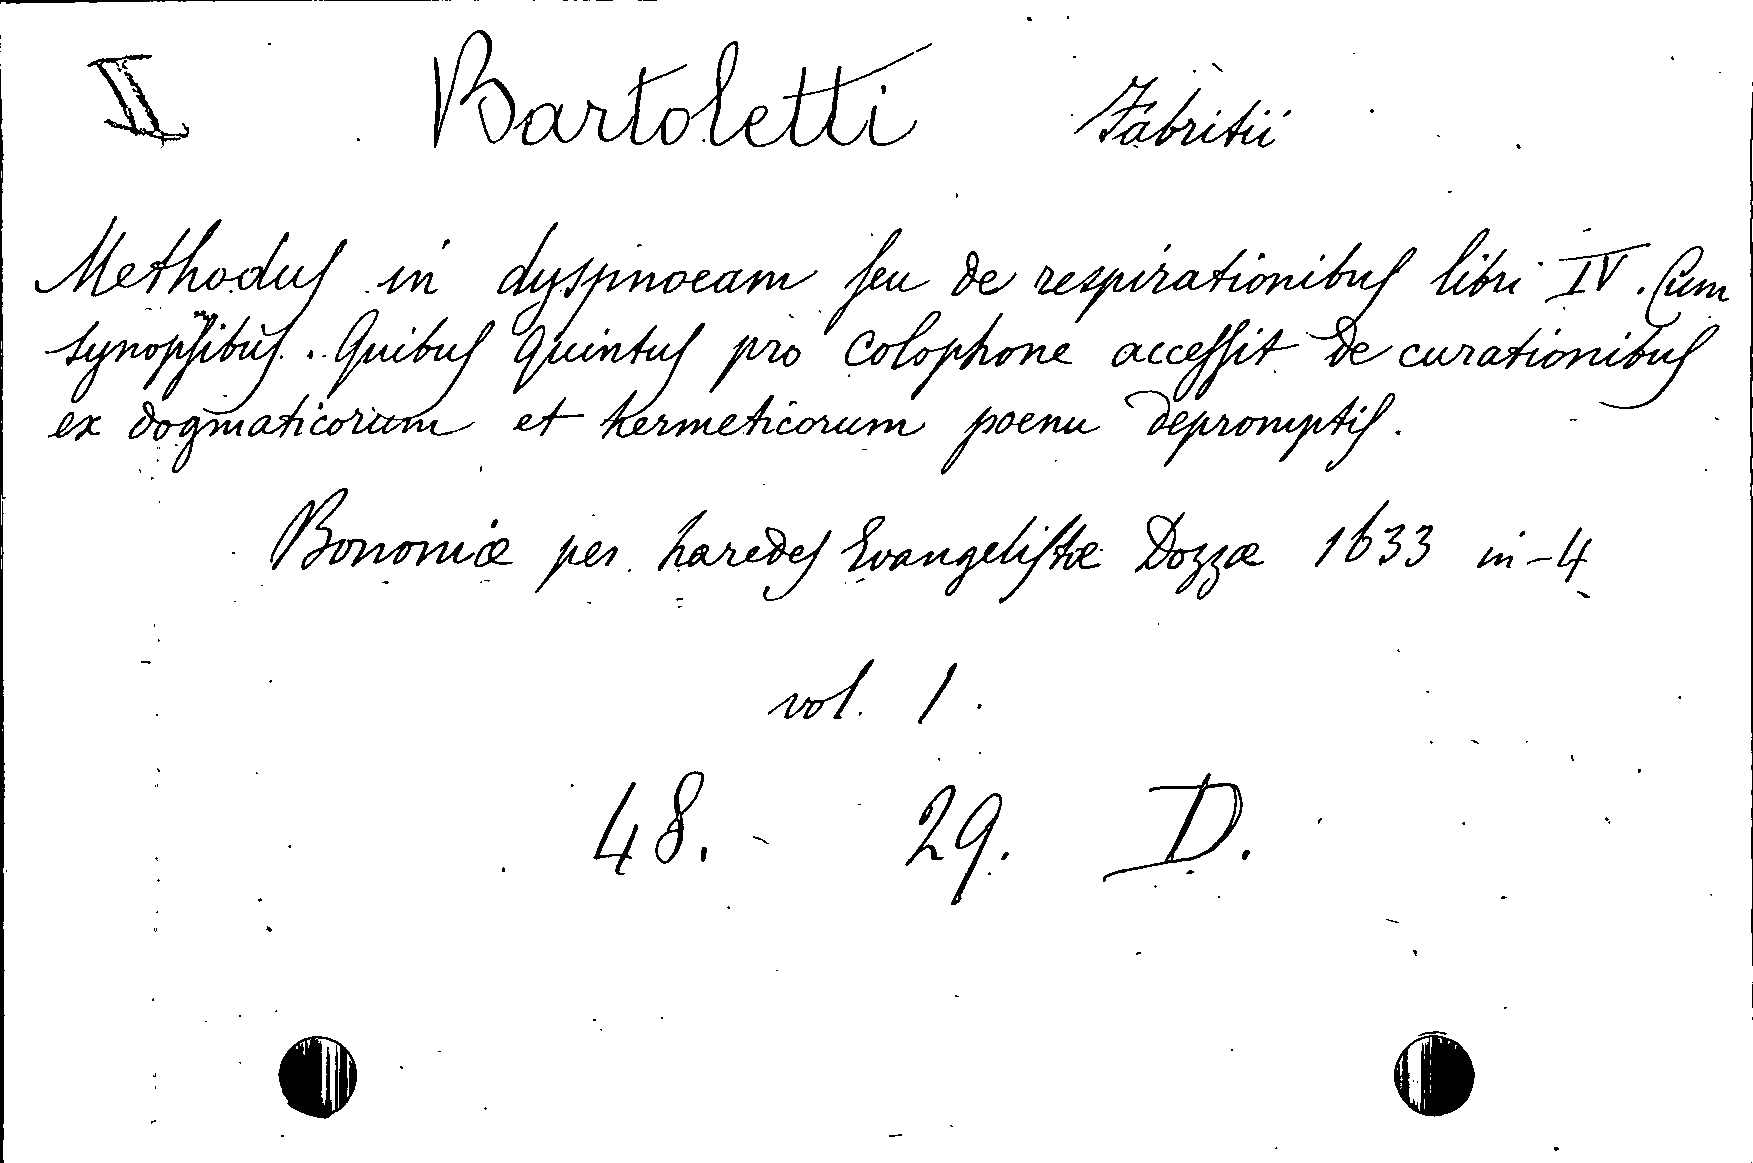 II Bartoletti Fabritii
Methodus in dyspnoeam seu de respirationibus libri IV. Cum
synopsibus. Quibus Quintus pro colophone accessit de curationibus
ex dogmaticorum et hermeticorum poenu depromptis.
Bononiæ per haredes Evangelistæ Dozzæ 1633 in-4
vol. 1.
48. 29. D.